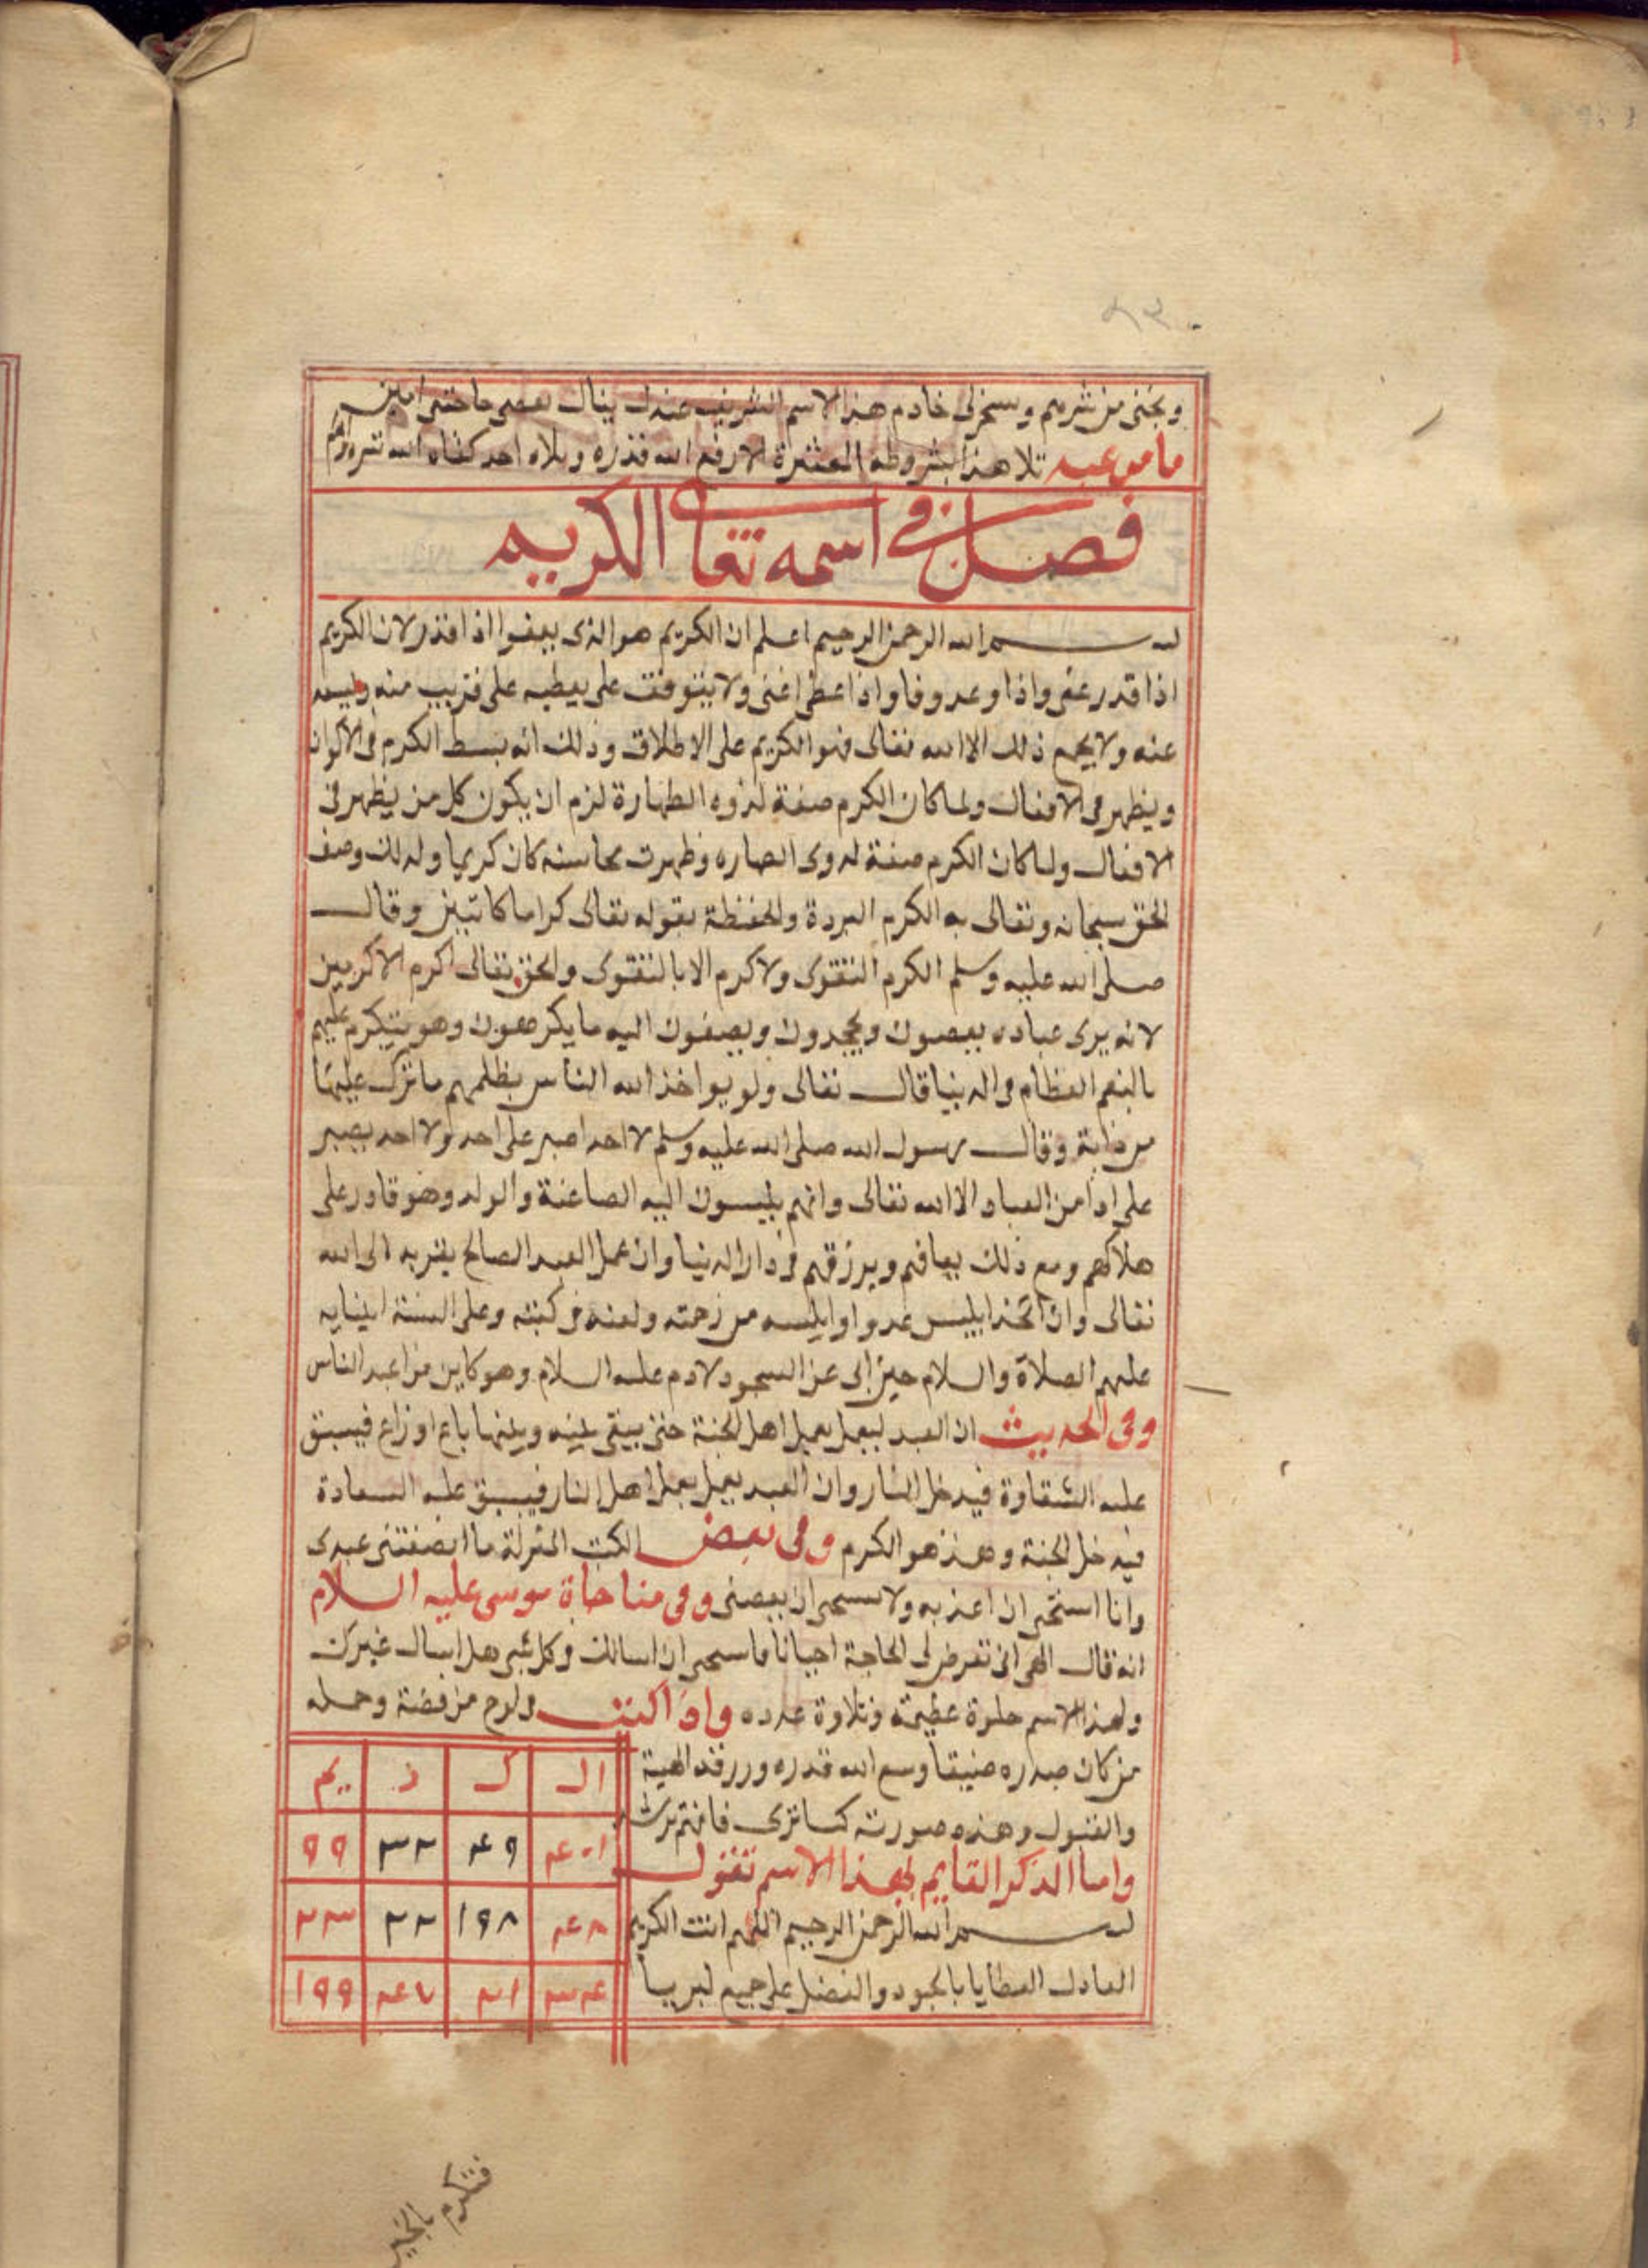 ونجنى من شرهم وسخر لى خادم هذا الاسم الشريف عندك يناك بعصى حاجتى امين
ما من عبد تلا هذا بشروطه المعتبرة الا رفع الله قدره وبلاه احد كفاه الله شره
فصل فى اسمه تعالى الكريم
بسم الله الرحمن الرحيم اعلم ان الكريم هو الذى يعفوا اذا قدر لان الكريم
اذا قدر عفى واذا وعد وفا واذا عطى اغنى ولا يتوقف على يعطيه على قريب منه
عنه ولا يجمع ذلك الا الله تعالى فهو الكريم على الاطلاق وذلك انه بسط الكرم فى الاكوان
ويظهر فى الافعال ولما كان الكرم صفة لذوه الطهارة لزم ان يكون كل من يظهر فى
الافعال ولما كان الكرم صفة لدوى الصاره وظهرت محاسنه كان كريما ولذلك وصف
الحق سبحانه وتعالى به الكرم البررة والحفظة بقوله تعالى كراما كاتبين وقال
صلى الله عليه وسلم الكرم التقوى ولا كرم الا بالتقوى والحق تعالى اكرم الاكرمين
لانه يرى عباده يعصون ويجحدون ويصفون اليه ما يكرهون وهو يتكرم عليهم
بالنعم العظام فى الدنيا قال تعالى ولو يواخذ الله الناس بظلمهم ما ترك عليها
من دابة وقال رسول الله صلى الله عليه وسلم لا احد اصبر على احد ولا احد يصبر
على اذا من العباد الا الله تعالى وانهم ينسبون اليه الصاعنة والولد وهو قادر على
هلاكهم ومع ذلك يعافهم ويرزقهم فى دار الدنيا وان عمل العبد الصالح يقربه الى الله
تعالى وان اتخذ ابليس عدوا وايلسه من رحمته ولعنه فى كتبه وعلى السنة انبيايه
عليهم الصلاة والسلام حين ابى عن السجود لادم عليه السلام وهو كاين من اعبد الناس
وفى الحديث ان العبد ليعمل بعمل اهل الجنة حتى يبقى بينه وبينها باع او زاع فيسبق
عليه الشقاوة فيدخل النار وان العبد يعمل بعمل اهل النار فيسبق عليه السعادة
فيدخل الجنة وهذ هو الكرم وفى بعض الكتب المنزلة ما انصفتنى عبدى
وانا استحى ان اعذبه ولا يستحى ان يعصنى وفى مناجاة موسى عليه السلام
انه قال الهى انى تعرض لى الحاجة احيانا فاستحى ان اسالك وكل شى هل اسال غيرك
ولهذا الاسم خلوة عظيمة وتلاوة عدده واذا كتب فى لوح من فضة وحمله
من كان صدره ضيقا وسع الله قدره ورزقه الهيبة
والقبول وهذه صورته كما ترى فافهم ترشد
ال ك ر يم
٤٠١ ٤٩ ٣٢ ٩٩
٤٨ ١٩٨ ٢٢ ٢٣
٤٣٤ ٢١ ٤٧ ١٩٩
واما الذكر القايم لهذا الاسم تقول
بسم الله الرحمن الرحيم اللهم انت الكريم
العادل العطايا بالجود والفضل على جميع لبريا
فتكرم بالخير